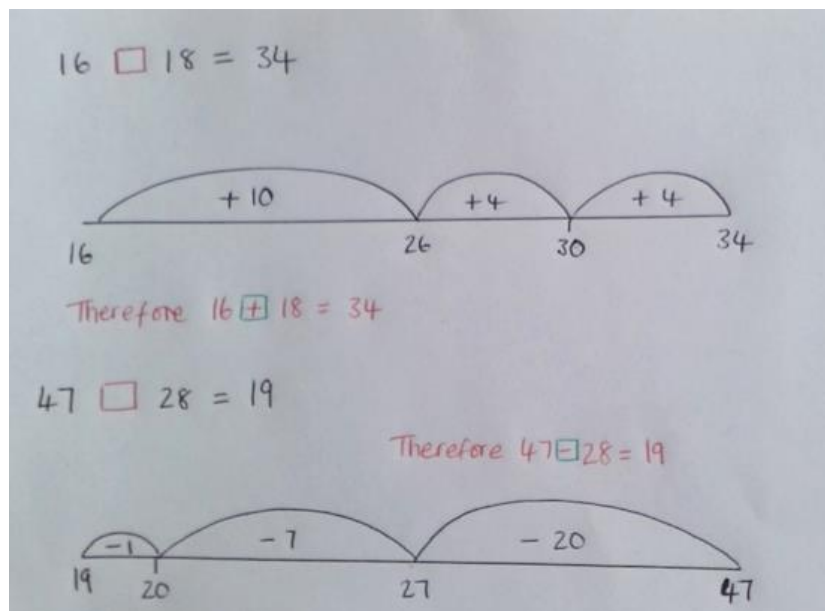 16 □ 18 = 34
+ 10 + 4 + 4
16 26 30 34
Therefore 16 + 18 = 34
47 □ 28 = 19
Therefore 47 - 28 = 19
- 1 - 7 - 20
19 20 27 47